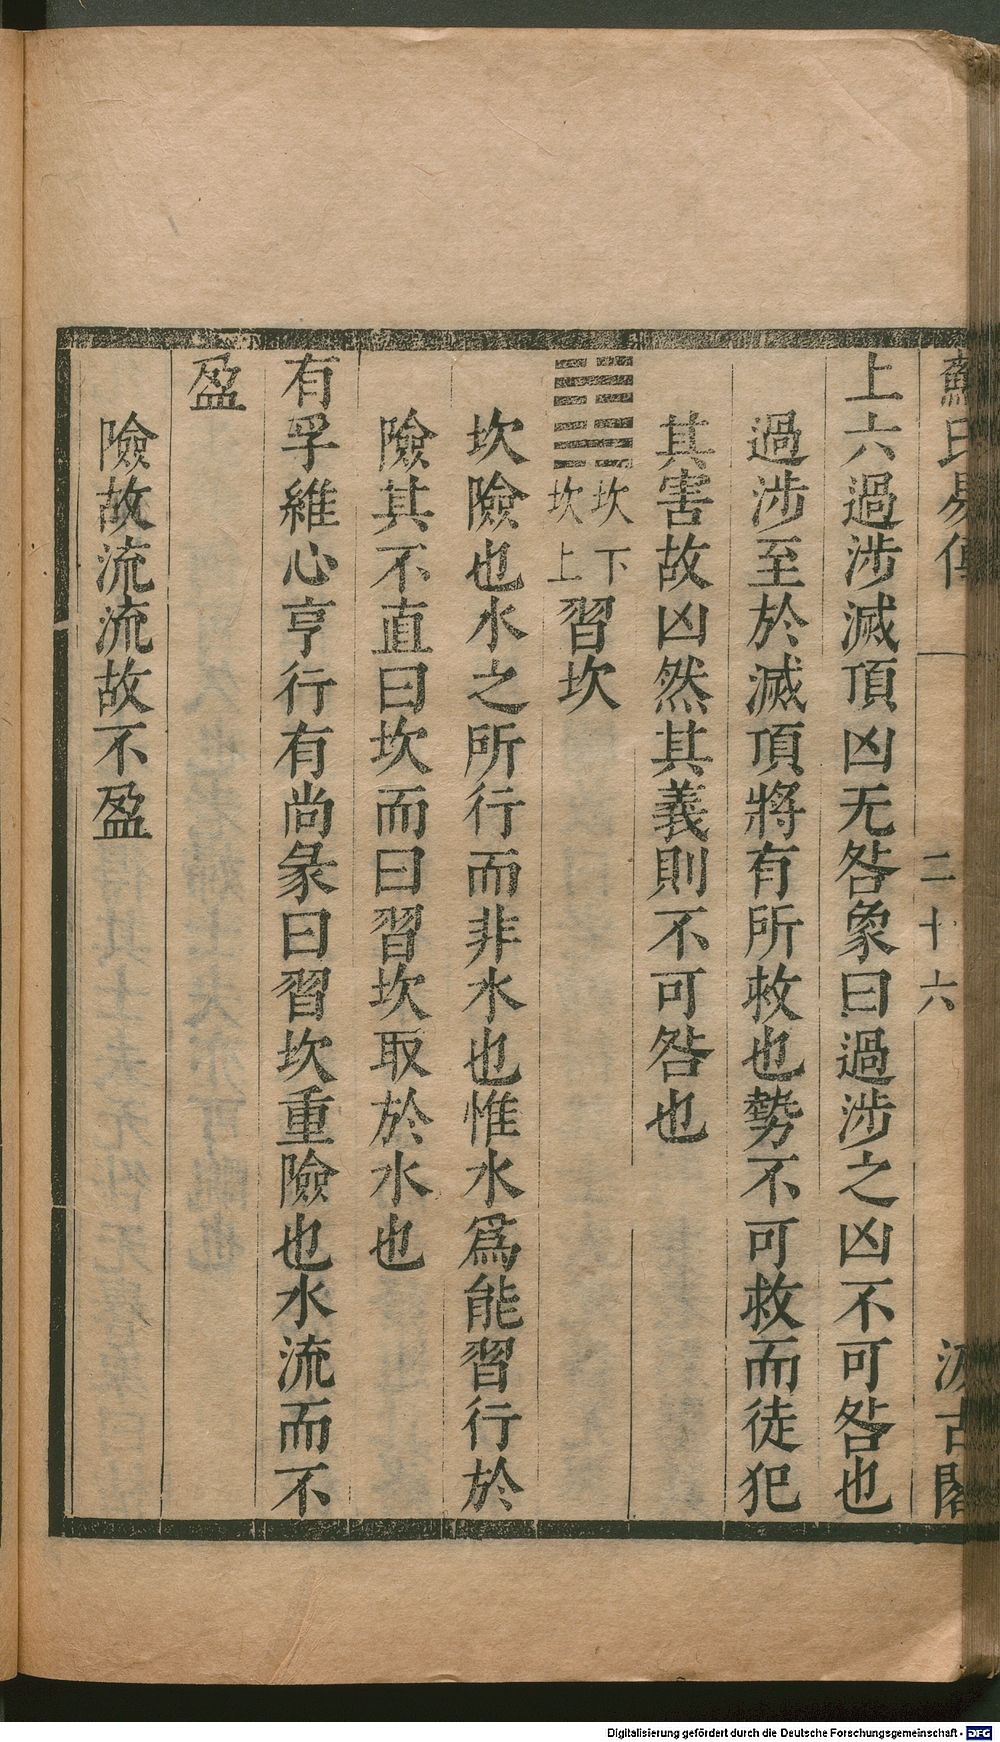 蘇氏易傳 二十六 汲古閣
上六過涉滅頂凶无咎象曰過涉之凶不可咎也
過涉至於滅頂將有所救也勢不可救而徒犯
其害故凶然其義則不可咎也
坎下
坎上
習坎
坎險也水之所行而非水也惟水爲能習行於
險其不直曰坎而曰習坎取於水也
有孚維心亨行有尚彖曰習坎重險也水流而不
盈
險故流流故不盈
Digitalisierung gefördert durch die Deutsche Forschungsgemeinschaft - DFG